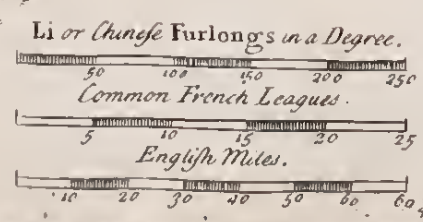 Li or Chineſe Furlongs in a Degree.
50 100 150 200 250
Common French Leagues.
5 10 15 20 25
Engliſh Miles.
10 20 30 40 50 60